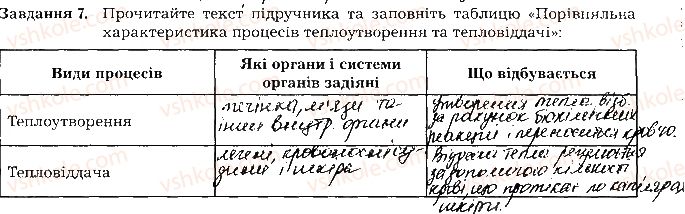 Завдання 7. Прочитайте текст підручника та заповніть таблицю «Порівняльна
характеристика процесів теплоутворення та тепловіддачі»:
Види процесів
Які органи і системи
органів задіяні
Що відбувається
Теплоутворення
печінка, м'язи та
інші внутр. органи
утворення тепла відб.
за рахунок біохімічних
реакцій і переноситься кров'ю.
Тепловіддача
легені, кровоносні су-
дини і шкіра
Віддача тепла
за допомогою кількості
крові, що протікає по капілярах
шкіри.